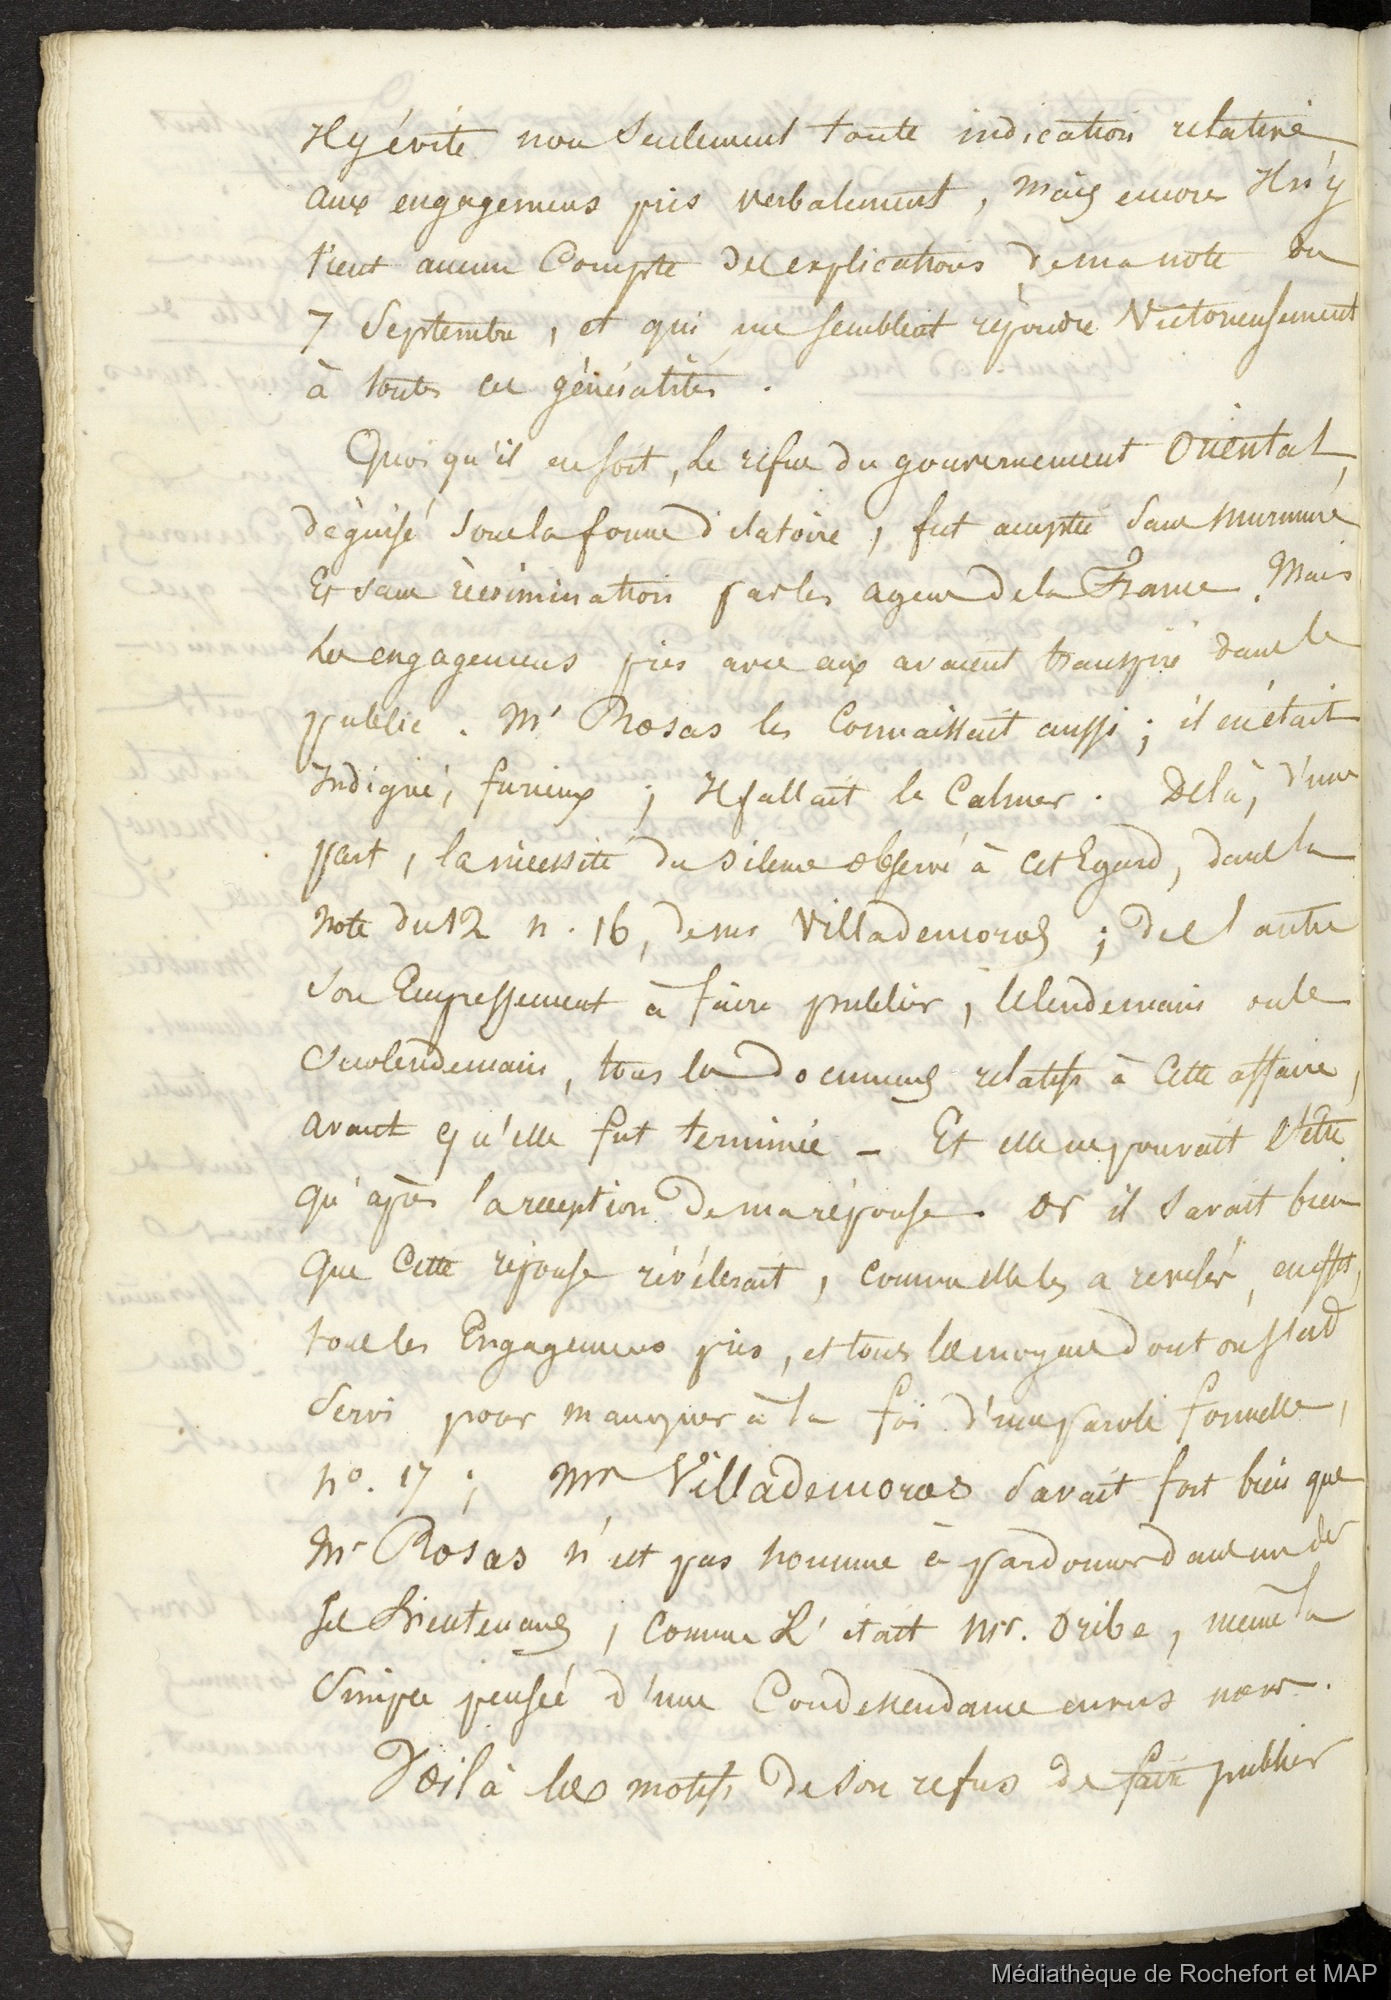 Il y évite non seulement toute indication relative
aux engagemens pris verbalement, mais encore Il n'y
tient aucun Compte des explications de ma note du
7 Septembre, et qui me semblait répondre Victorieusement
à toutes ces généralités.
Quoi qu'il en soit, le refus du gouvernement Oriental,
déguisé sous la forme dilatoire, fut acceptée sans murmure
Et sans récrimination par les agens de la France. Mais
les engagemens pris avec eux avaient transpiré dans le
public. Mr Rosas les Connaissait aussi; il en était
Indigné, furieux; Il fallait le Calmer. De là, d'une
part, la nécessité du silence observé à cet Egard, dans la
Note du 12 n. 16, de Mr Villademoros; de l'autre
son Empressement à faire publier, le lendemain ou le
Surlendemain, tous les documens relatifs à Cette affaire,
avant qu'elle fut terminée – Et elle ne pouvait l'être
qu'après la réception de ma réponse. Or il savait bien
que Cette réponse révélerait, comme elle les a révélés, en effet,
tous les Engagemens pris, et tous les moyens dont on s'est
Servi pour manquer à la foi d'une parole formelle,
no. 17; Mr Villademoros savait fort bien que
Mr Rosas n'est pas homme à pardonner dans un de
ses Lieutenans, comme L'était Mr. Oribe, même la
Simple pensée d'une Condescendance envers nous.
Voilà les motifs de son refus de faire publier
Médiathèque de Rochefort et MAP